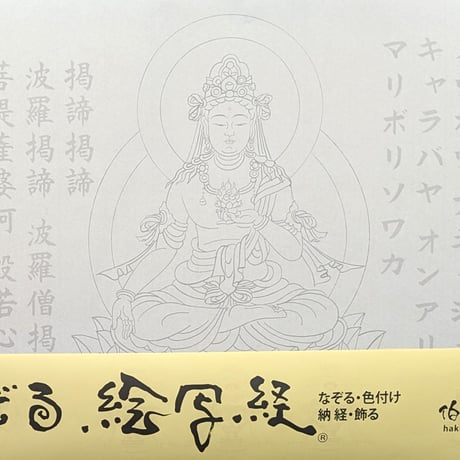 キャラバヤオンアリ
マリボリソワカ
掲諦掲諦
波羅掲諦 波羅僧掲
菩提薩婆訶 般若心
ぞる 絵写経
なぞる・色付け
納経・飾る
®
hak